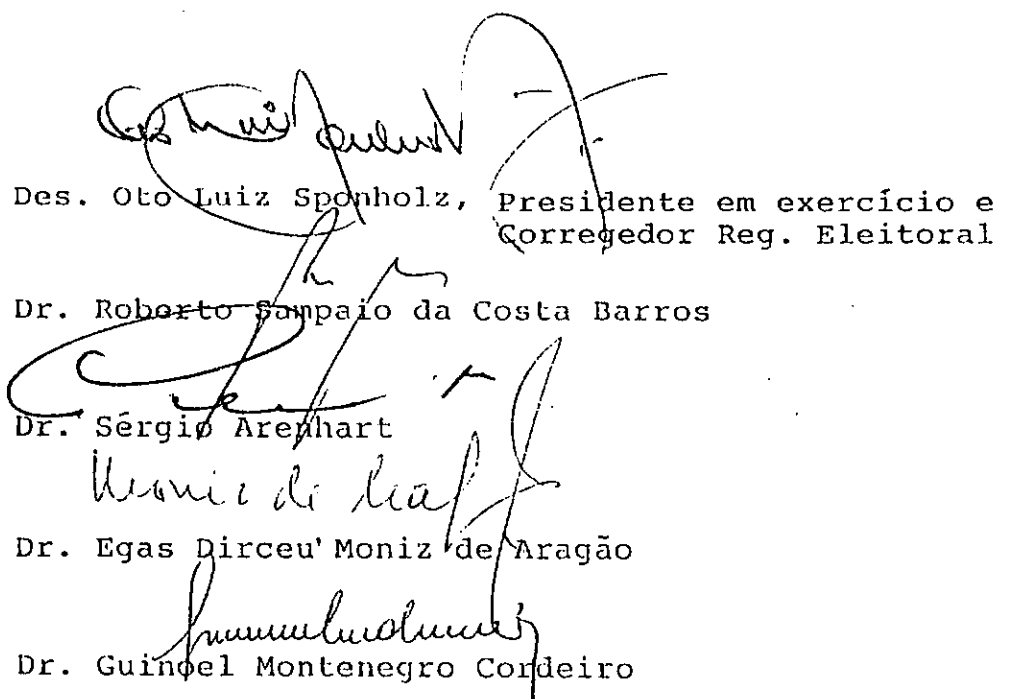 Des. Oto Luiz Sponholz, Presidente em exercício e
Corregedor Reg. Eleitoral
Dr. Roberto Sampaio da Costa Barros
Dr. Sérgio Arenhart
Moniz de
Dr. Egas Dirceu Moniz de Aragão
Dr. Guinoel Montenegro Cordeiro